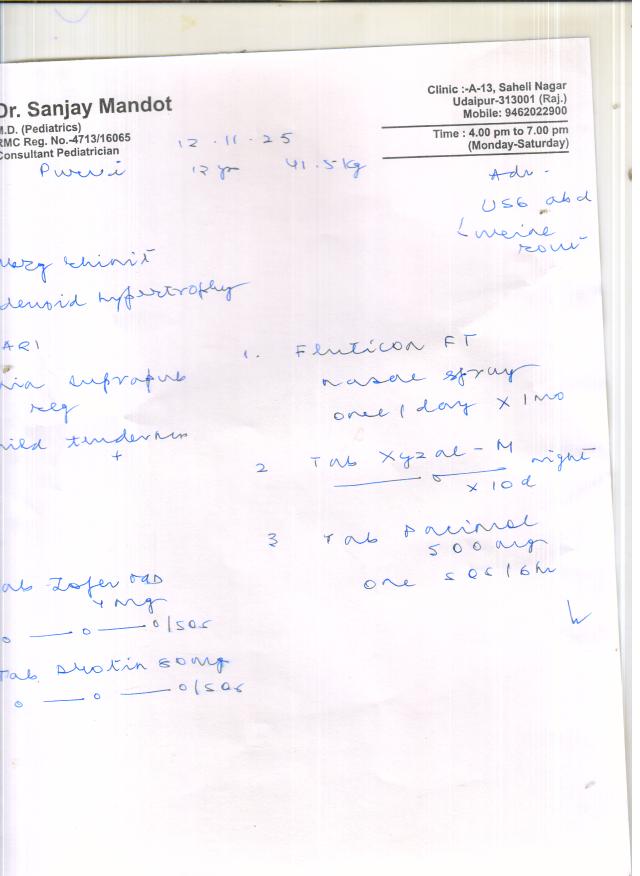 Dr. Sanjay Mandot
M.D. (Pediatrics)
RMC Reg. No.-4713/16065
Consultant Pediatrician
Clinic :-A-13, Saheli Nagar
Udaipur-313001 (Raj.)
Mobile: 9462022900
Time : 4.00 pm to 7.00 pm
(Monday-Saturday)
12.11.25
Purvi 12 yr 41.5kg
Adv.
USG abd
rhinit
hypertrophy
ARI
suprapub
reg
tenderness
+
1. Fluticon FT
nasal spray
once / day x 1 mo
2 Tab Xyzal - M
night
x 10 d
3 Tab Pacimol
500 mg
one sos / 6 hr
4 mg
0 — 0 — 0/sos
Tab Drotin 80mg
0 — 0 — 0/sos